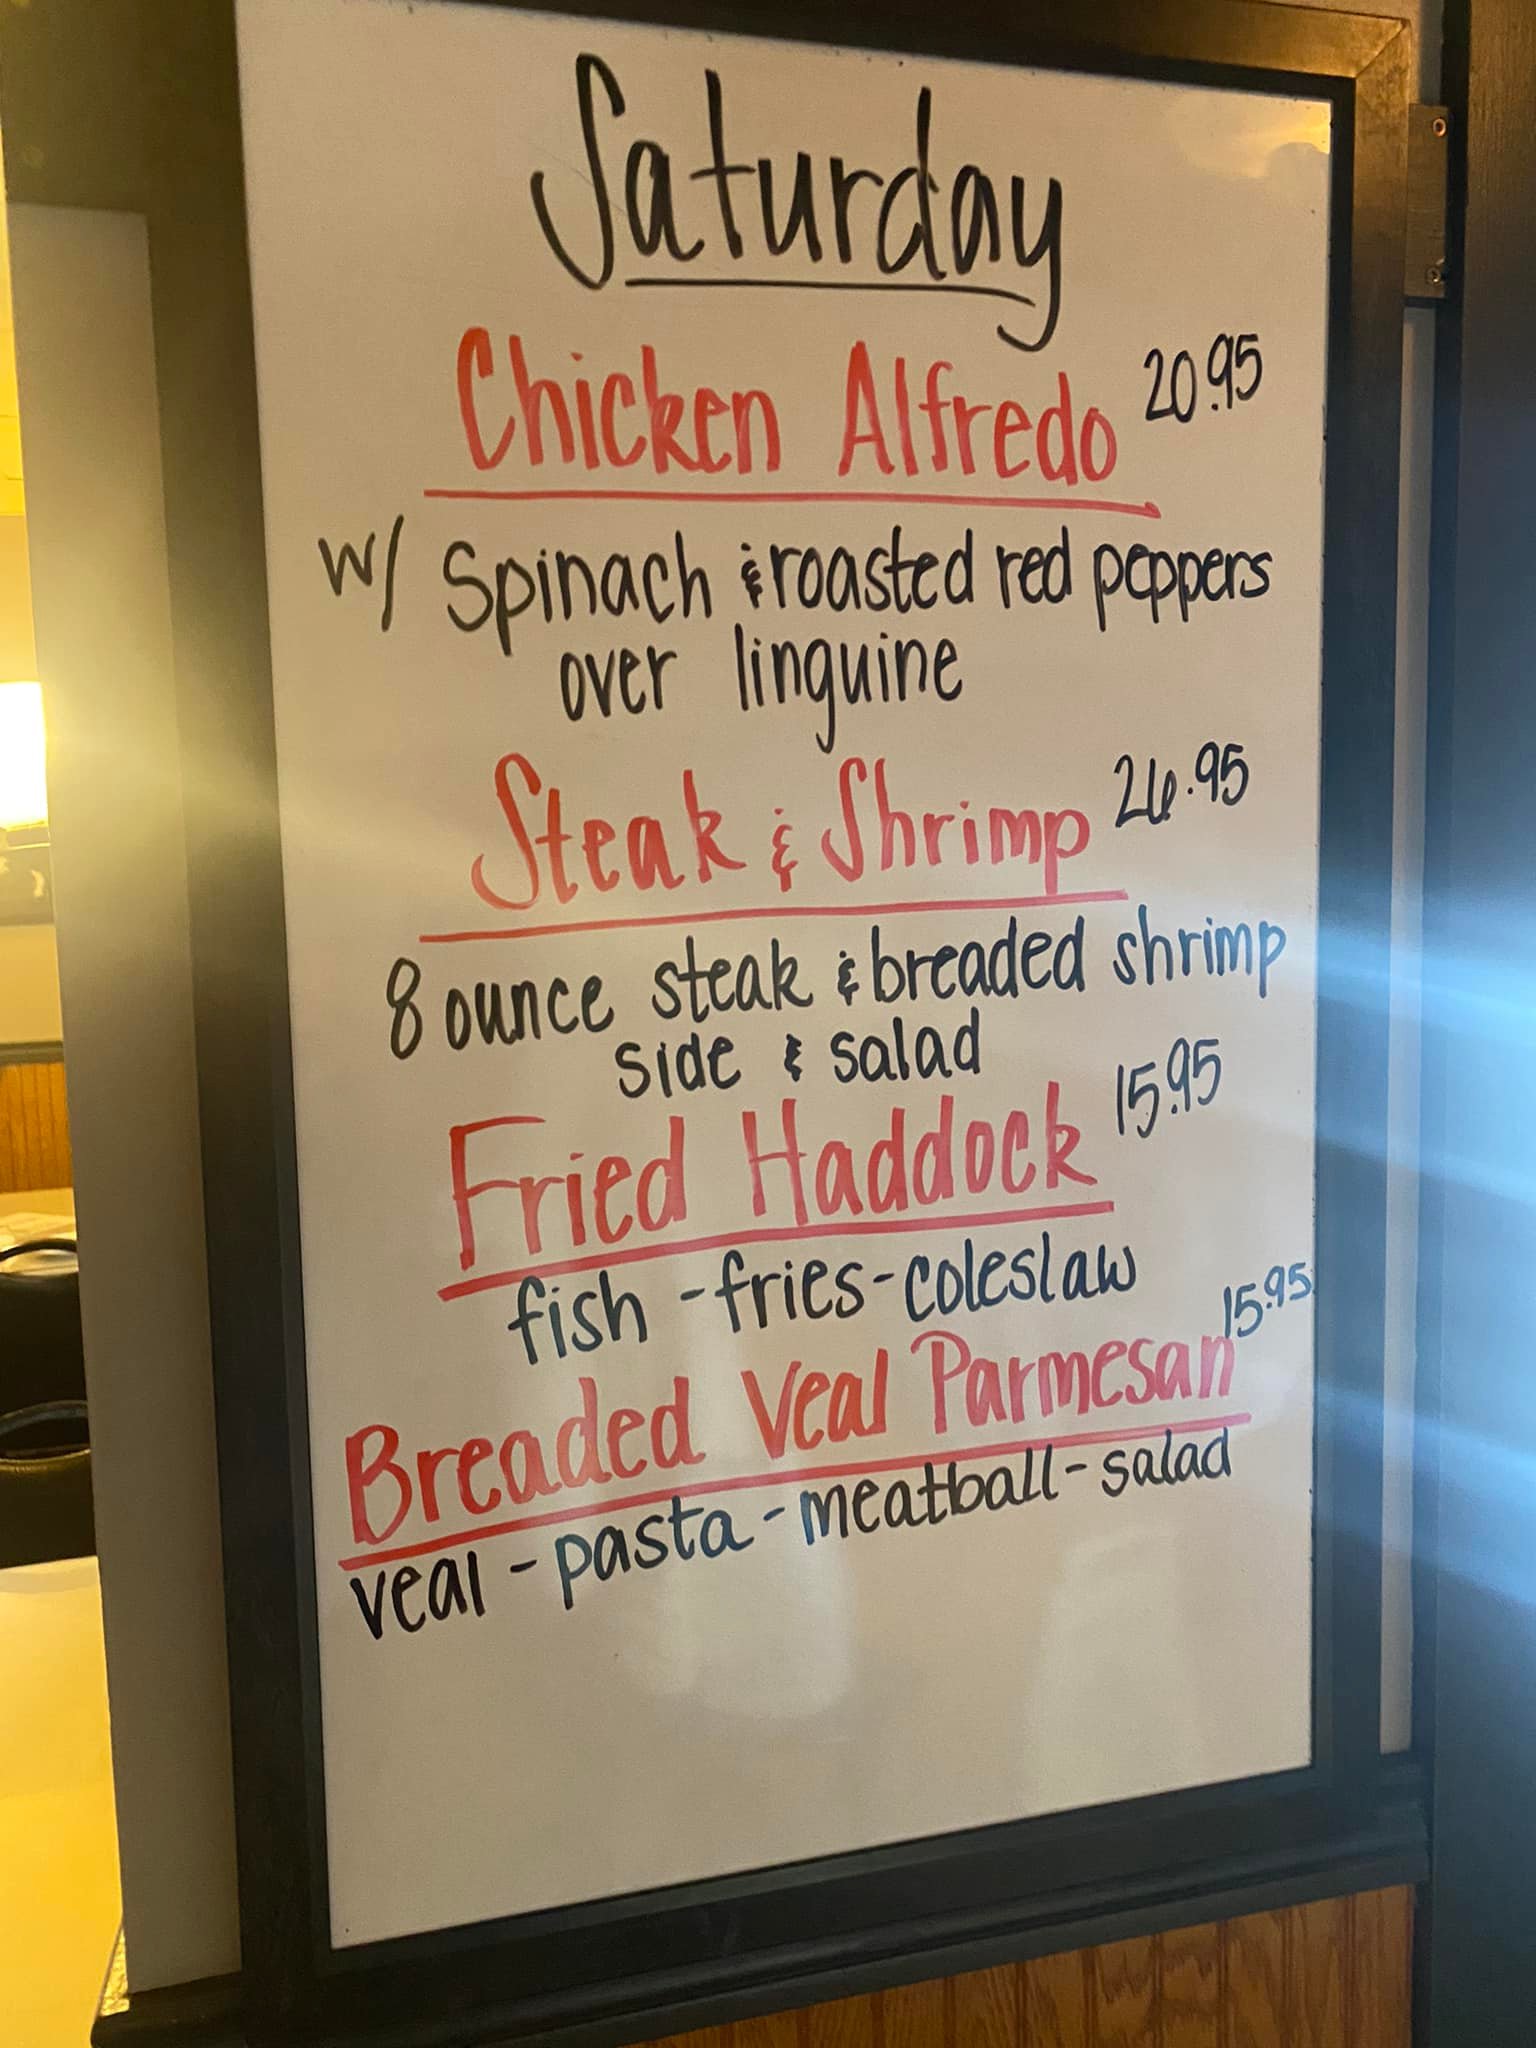 Saturday
Chicken Alfredo 20.95
w/ Spinach & roasted red peppers
over linguine
Steak & Shrimp 26.95
8 ounce steak & breaded shrimp
side & salad
Fried Haddock 15.95
fish - fries - coleslaw
Breaded Veal Parmesan 15.95
veal - pasta - meatball - salad